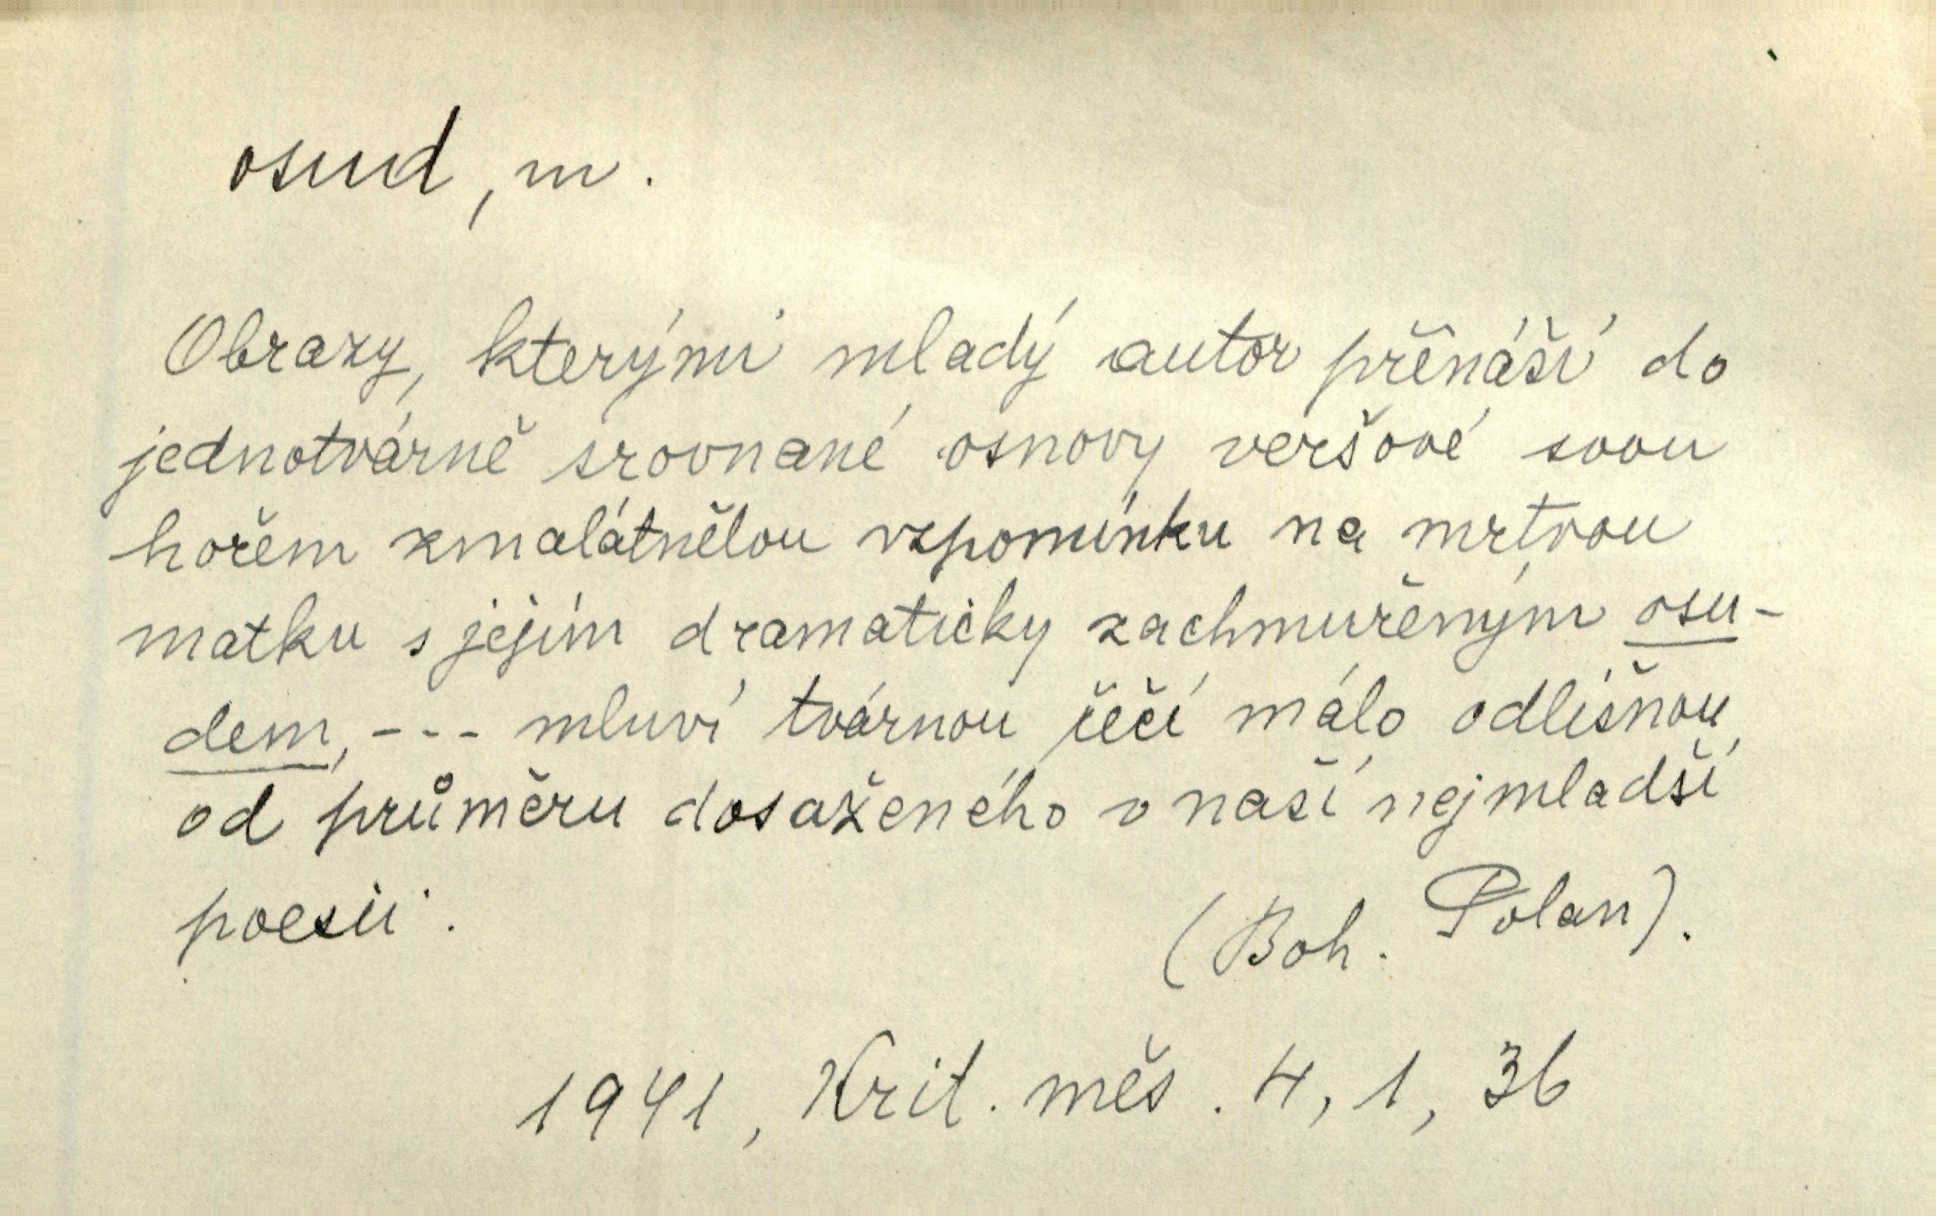 osud, m.
Obrazy, kterými mladý autor přenáší do
jednotvárně srovnané osnovy veršové svou
hořem zmalátnělou vzpomínku na mrtvou
matku s jejím dramaticky zachmuřeným osu-
dem, --- mluví tvárnou řečí málo odlišnou
od průměru dosaženého v naší nejmladší
poesii.
(Boh. Polan).
1941, Krit. měs. 4, 1, 36